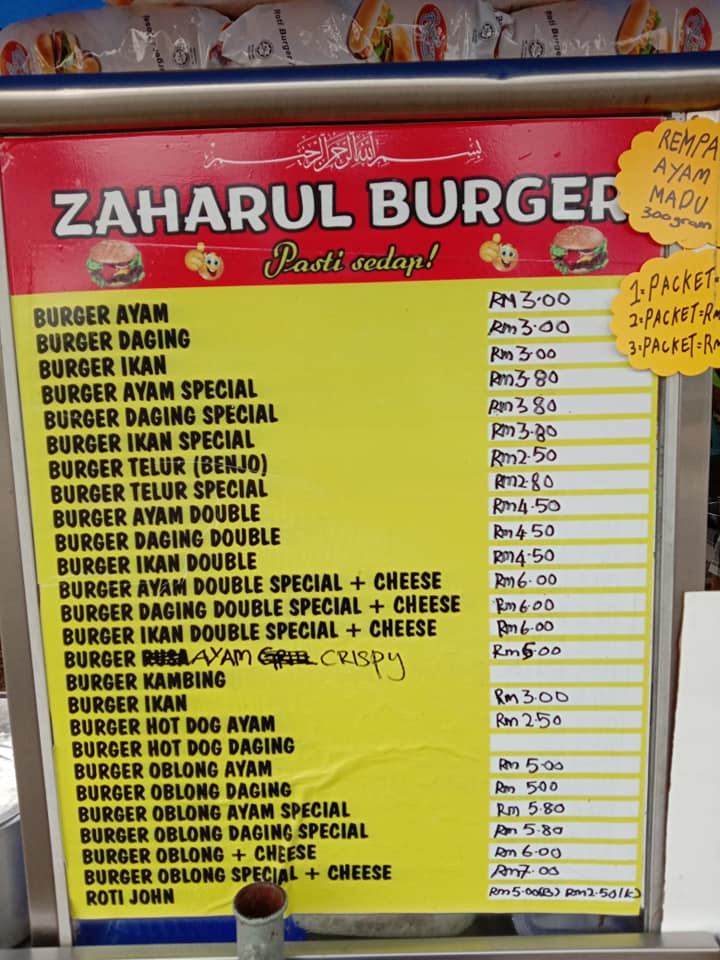 Roti Burger
Roti Burger
بسم الله الرحمن الرحيم
ZAHARUL BURGER
Pasti sedap!
REMPA
AYAM
MADU
300gram
1=PACKET=
2=PACKET=RM
3=PACKET=RM
BURGER AYAM RM3.00
BURGER DAGING Rm3.00
BURGER IKAN Rm3.00
BURGER AYAM SPECIAL Rm3.80
BURGER DAGING SPECIAL Rm3.80
BURGER IKAN SPECIAL Rm3.80
BURGER TELUR (BENJO) Rm2.50
BURGER TELUR SPECIAL Rm2.80
BURGER AYAM DOUBLE Rm4.50
BURGER DAGING DOUBLE Rm4.50
BURGER IKAN DOUBLE Rm4.50
BURGER AYAM DOUBLE SPECIAL + CHEESE Rm6.00
BURGER DAGING DOUBLE SPECIAL + CHEESE Rm6.00
BURGER IKAN DOUBLE SPECIAL + CHEESE Rm6.00
BURGER AYAM CRISPY Rm6.00
BURGER KAMBING
BURGER IKAN Rm3.00
BURGER HOT DOG AYAM Rm2.50
BURGER HOT DOG DAGING
BURGER OBLONG AYAM Rm 5.00
BURGER OBLONG DAGING Rm 500
BURGER OBLONG AYAM SPECIAL Rm 5.80
BURGER OBLONG DAGING SPECIAL Rm 5.80
BURGER OBLONG + CHEESE Rm 6.00
BURGER OBLONG SPECIAL + CHEESE Rm7.00
ROTI JOHN Rm5.00(B) Rm2.50(K)